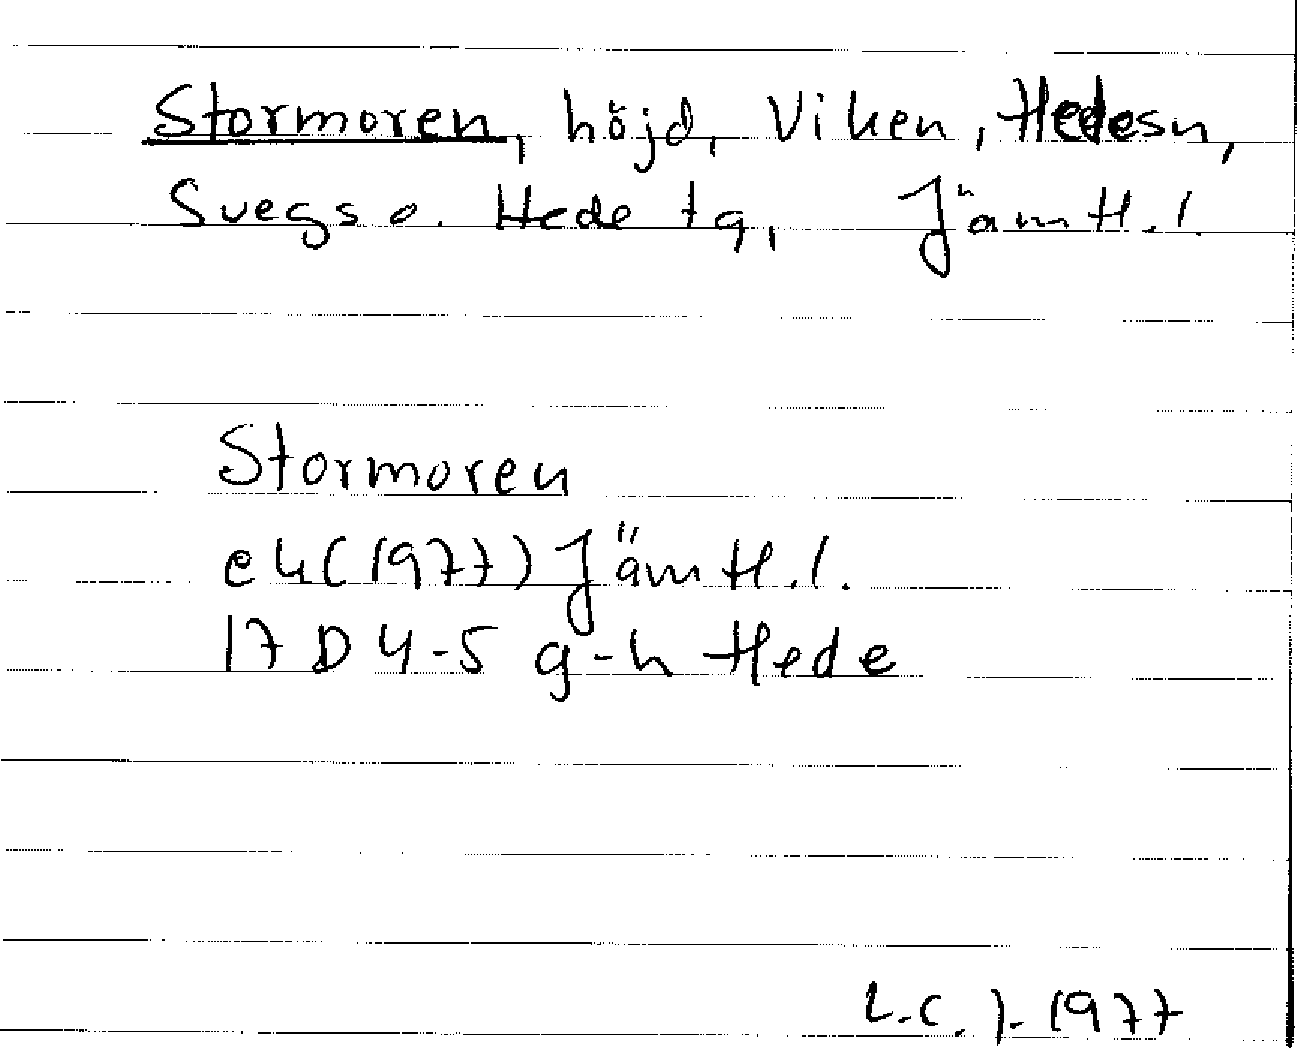 Stormoren, höjd, Viken, Hedesn,
Svegs o. Hede tg, Jämtl. l.
Stormoren
ek (1977) Jämtl. l.
17 D 4-5 g-h Hede
L.C. J. 1977